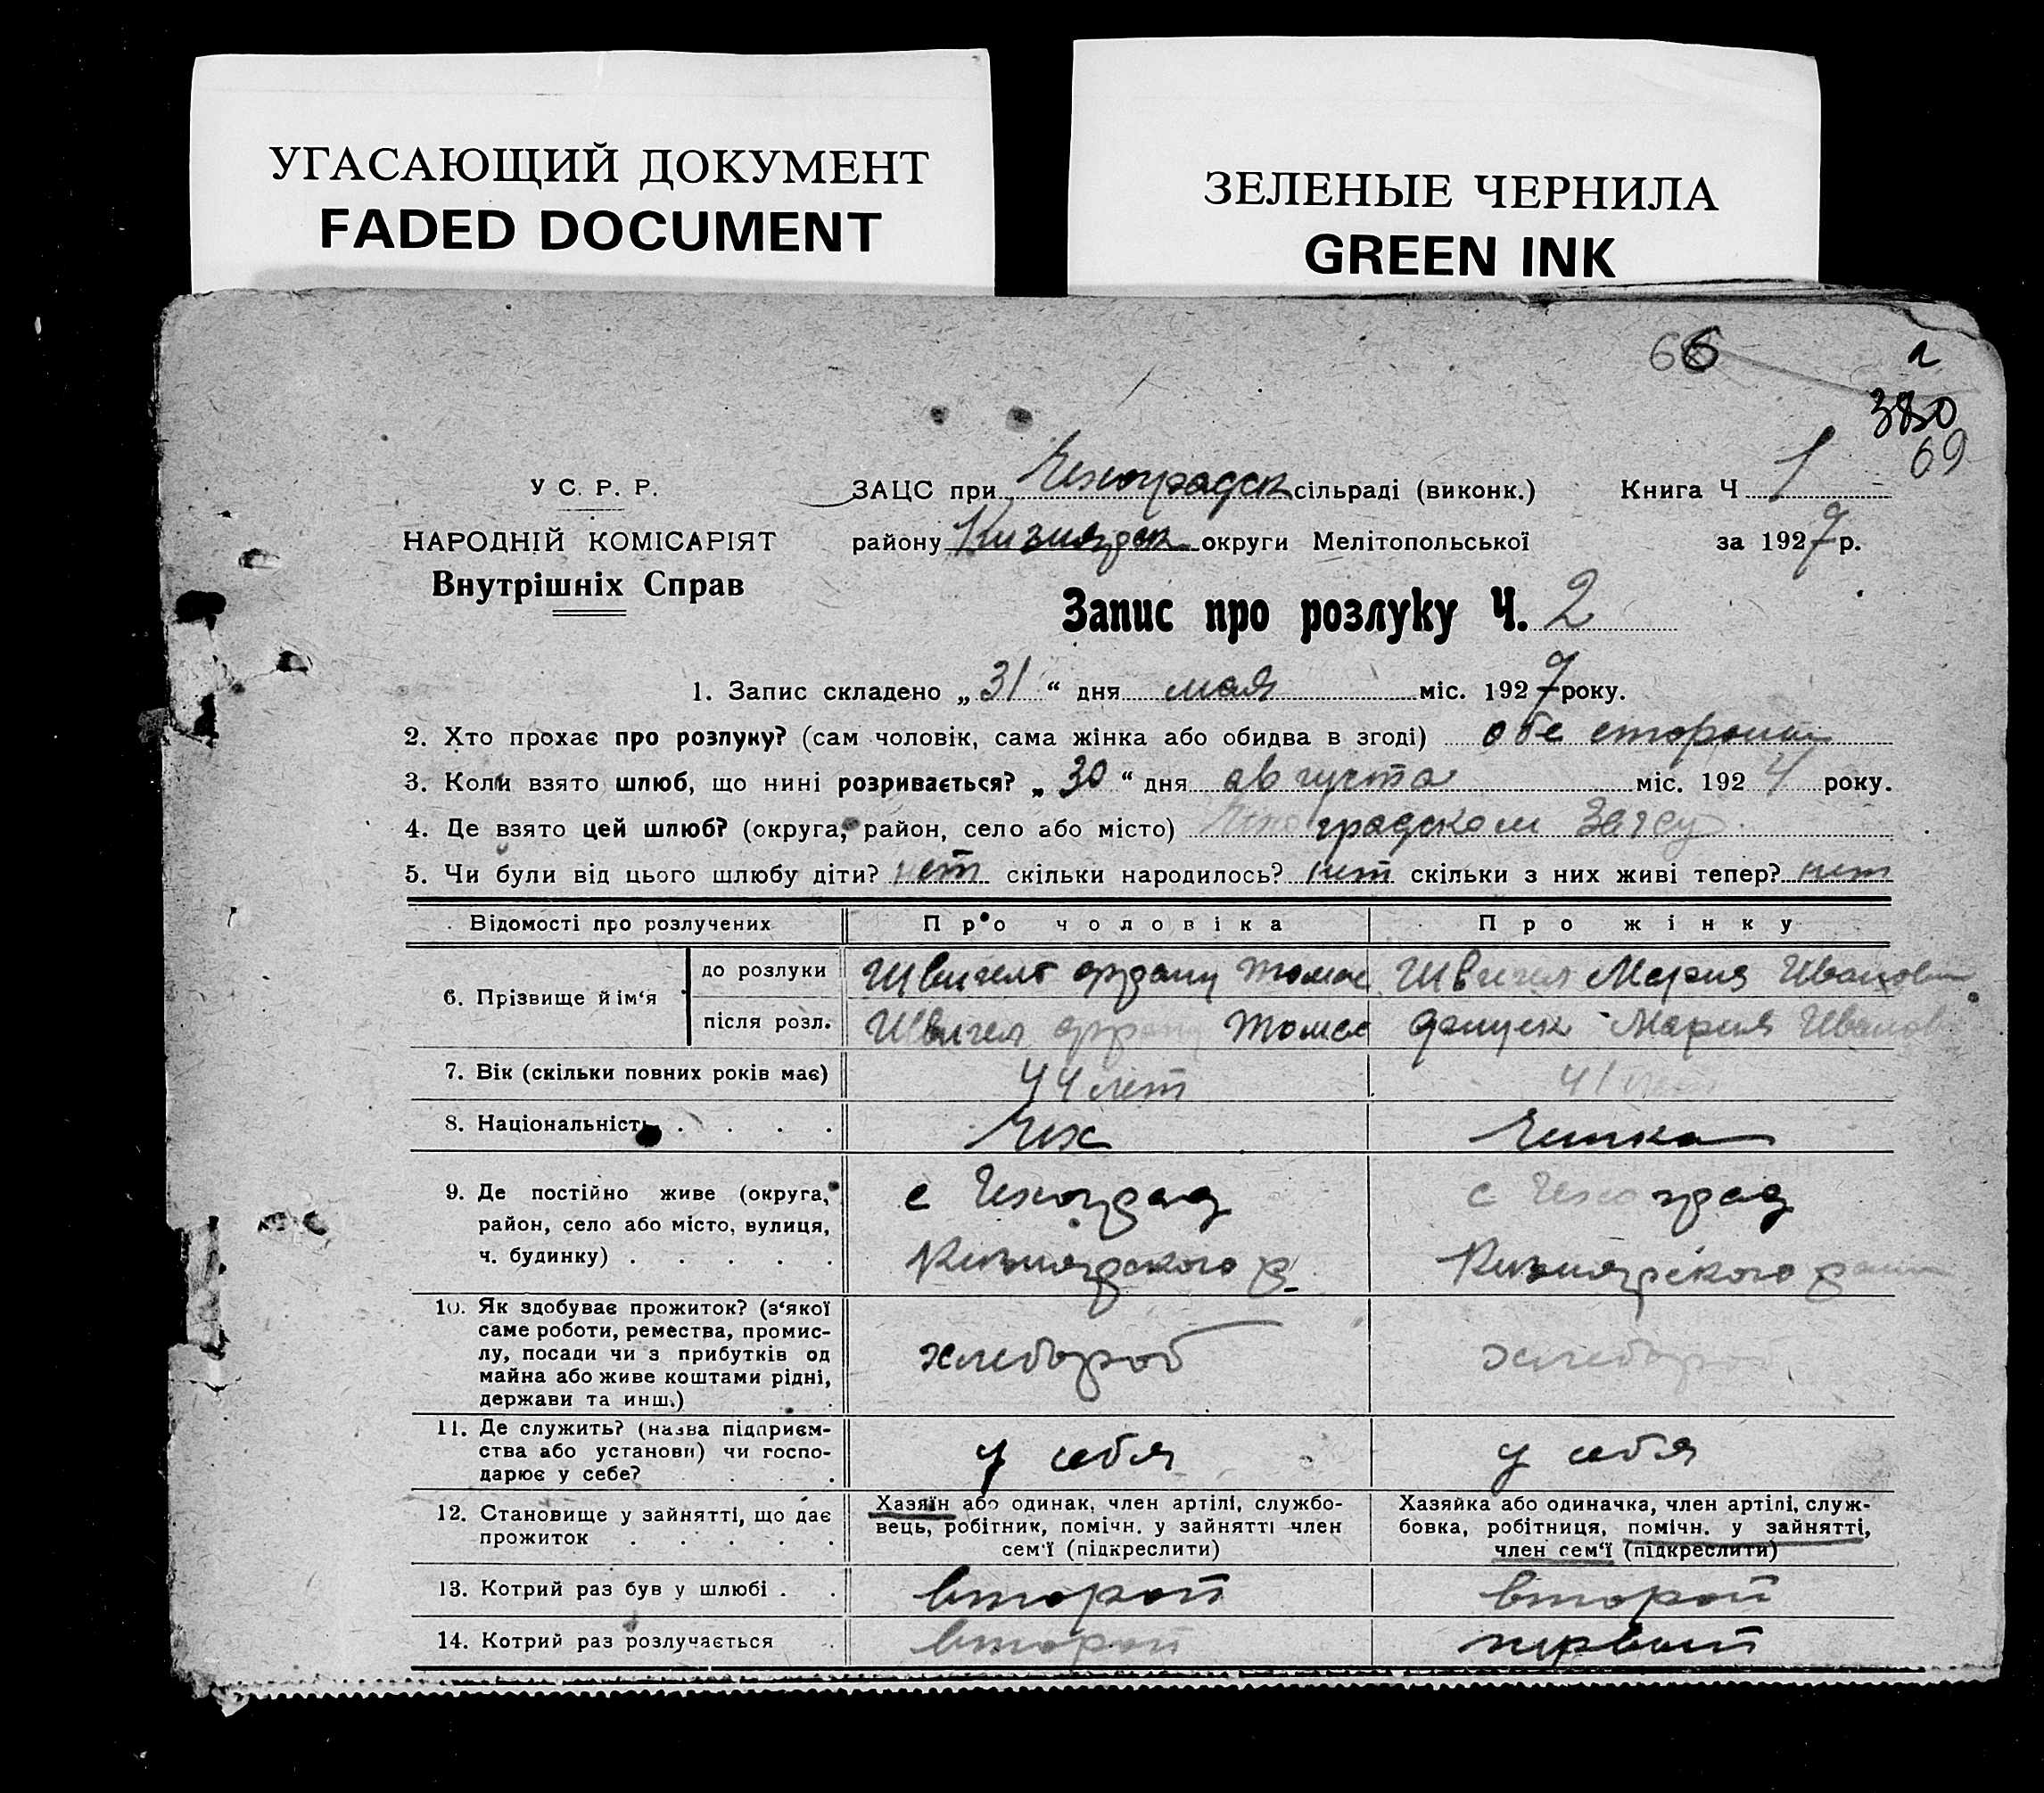 УГАСАЮЩИЙ ДОКУМЕНТ
FADED DOCUMENT
ЗЕЛЕНЫЕ ЧЕРНИЛА
GREEN INK
66
380
69
У С. Р. Р.
НАРОДНІЙ КОМІСАРІЯТ
Внутрішніх Справ
ЗАЦС при Чехоградск сільраді (виконк.)
Книга Ч 1
району Кизиярск округи Мелітопольської
за 1927 р.
Запис про розлуку Ч. 2
1. Запис складено „31“ дня мая міс. 1927 року.
2. Хто прохає про розлуку? (сам чоловік, сама жінка або обидва в згоді) обе стороны
3. Коли взято шлюб, що нині розривається? „30“ дня августа міс. 1924 року.
4. Де взято цей шлюб? (округа, район, село або місто) Чехоградском Загсу
5. Чи були від цього шлюбу діти? нет скільки народилось? нет скільки з них живі тепер? нет
Відомості про розлучених
Про чоловіка
Про жінку
6. Прізвище й ім‘я
до розлуки
Томас
Мария Иванов
після розл.
Томас
Мария Иванов
7. Вік (скільки повних років має)
44 лет
41 лет
8. Національність
Чех
Чешка
9. Де постійно живе (округа, район, село або місто, вулиця, ч. будинку)
с Чехоград
Кизиярского р.
с Чехоград
Кизиярского
10. Як здобуває прожиток? (з‘якої
саме роботи, ремества, промис-
лу, посади чи з прибутків од
майна або живе коштами рідні,
держави та инш.)
хлебороб
хлебороб
11. Де служить? (назва підприєм-
ства або установи) чи госпо-
дарює у себе?
у себя
у себя
12. Становище у зайнятті, що дає
прожиток
Хазяїн або одинак, член артілі, службо-
вець, робітник, помічн. у зайнятті член
сем‘ї (підкреслити)
Хазяйка або одиначка, член артілі, служ-
бовка, робітниця, помічн. у зайнятті,
член сем‘ї (підкреслити)
13. Котрий раз був у шлюбі
второй
второй
14. Котрий раз розлучається
второй
первый